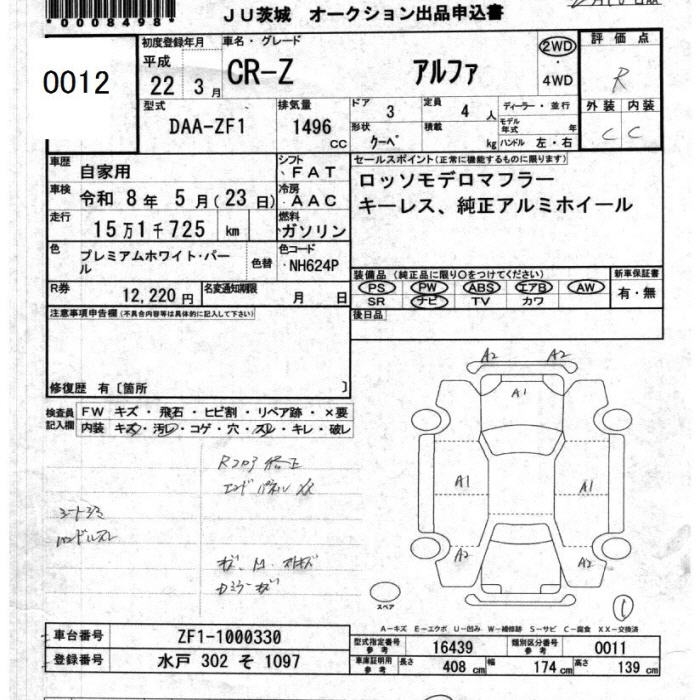 *00008498*
JU茨城 オークション出品申込書
0012
初度登録年月
平成
22 3月
車名・グレード
CR-Z アルファ
2WD
・
4WD
評価点
R
外装 内装
C C
型式
DAA-ZF1
排気量
1496
CC
ドア 3
定員 4 人
形状 クーペ
積載 kg
ディーラー・並行
モデル年式 年
ハンドル 左・右
車歴
自家用
シフト
FAT
車検
令和 8年 5月(23日)
冷房
AAC
走行
15万1千725 km
燃料
ガソリン
色
プレミアムホワイト・パール
色替
色コード
NH624P
R券
12,220円
名変通知期限
月 日
セールスポイント(正常に機能するものに限ります)
ロッソモデロマフラー
キーレス、純正アルミホイール
装備品(純正品に限り○をつけてください)
PS PW ABS エアB AW
SR ナビ TV カワ
新車保証書
有・無
後日品
注意事項申告欄(不具合内容等は具体的に記入して下さい)
修復歴 有〔箇所 〕
検査員記入欄
FW キズ・飛石・ヒビ割・リペア跡・×要
内装 キズ・汚レ・コゲ・穴・スレ・キレ・破レ
エンドパネル XX
シートスミ
ハンドルスレ
A2 A2
A1
A1 A1
A2 A2
スペア
A-キズ E-エクボ U-凹み W-補修跡 S-サビ C-腐食 XX-交換済
車台番号
ZF1-1000330
登録番号
水戸 302 そ 1097
型式指定番号
参考
16439
類別区分番号
参考
0011
車庫証明用
参考
長さ 408 cm
幅 174 cm
高さ 139 cm